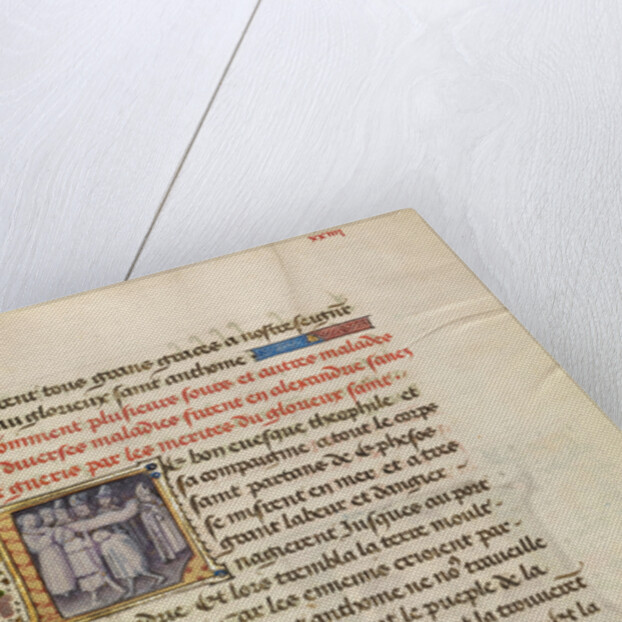 xxiiij
rent tous grans graces a nostre seignr
du glorieux saint anthoine
Comment plusieurs sours et autres malades
diverses maladies furent en alexandrie sanez
gueris par les merites du glorieux saint
le bon evesque theophile et
sa compaignie atout le corps
saint partant de Ephese
se misrent en mer et a tres
grant labeur et dangier
nagierent Jusques au port
Et lors trembla la terre moult
par les ennemis crioient par
anthoine ne no9 traveille
et le pueple de la